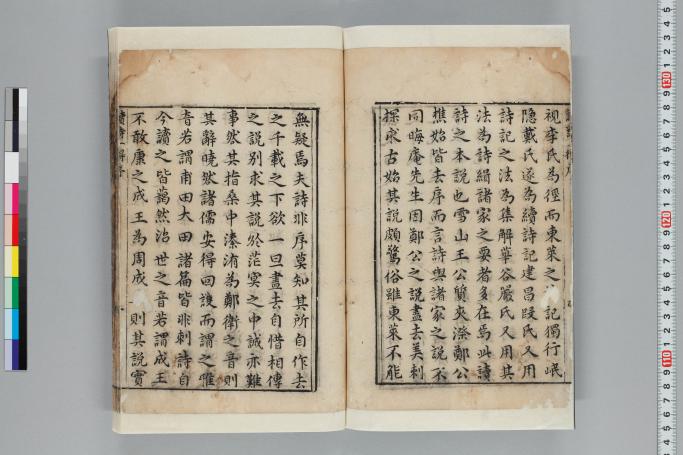 視李氏為徑而東萊之 記獨行岷
隱戴氏遂為續詩記建昌段氏又用
詩記之法為集解華谷嚴氏又用其
法為詩緝諸家之要者多在焉此讀
詩之本說也雪山王公質夾漈鄭公
樵始皆去序而言詩與諸家之說不
同晦庵先生因鄭公之說盡去美刺
探求古始其說頗驚俗雖東萊不能
無疑焉夫詩非序莫知其所自作去
之千載之下欲一旦盡去自惜相傳
之說別求其說於茫冥之中誠亦難
事然其指桑中溱洧為鄭衛之音則
其辭曉然諸儒安得回護而謂之雅
音若謂甫田大田諸篇皆非刺詩自
今讀之皆藹然治世之音若謂成王
不敢康之成王為周成 則其說實
130
120
110